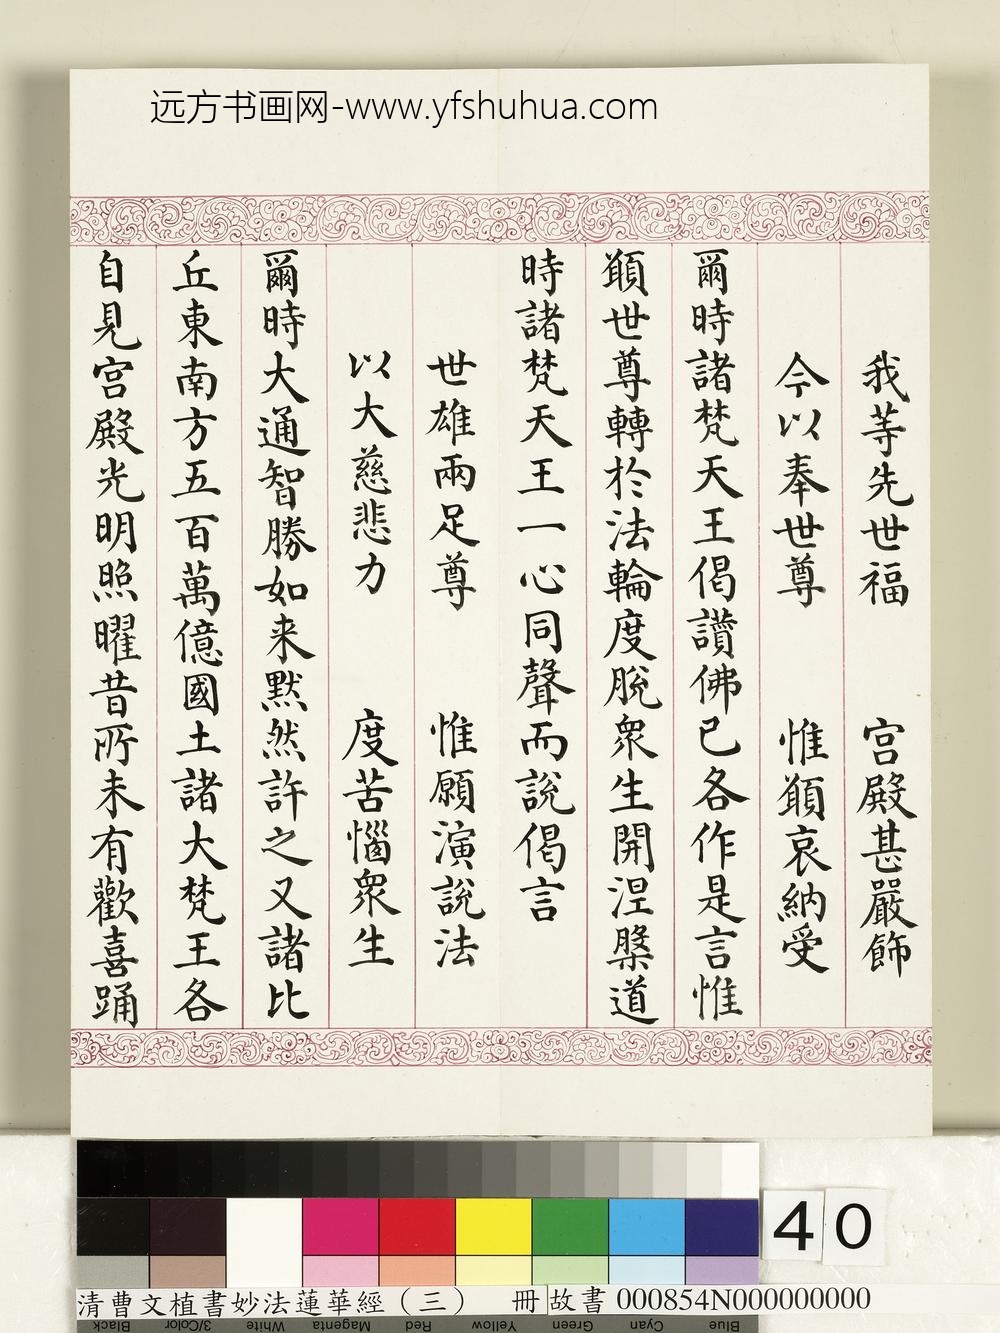 远方书画网-www.yfshuhua.com
我等先世福 宮殿甚嚴飾
今以奉世尊 惟顚哀納受
爾時諸梵天王偈讚佛已各作是言惟
顚世尊轉於法輪度脫衆生開涅槃道
時諸梵天王一心同聲而說偈言
世雄兩足尊 惟願演說法
以大慈悲力 度苦惱衆生
爾時大通智勝如来默然許之又諸比
丘東南方五百萬億國土諸大梵王各
自見宮殿光明照曜昔所未有歡喜踊
40
清曹文植書妙法蓮華經（三） 冊 故書 000854N000000000
Black 3/Color White Magenta Red Yellow Green Cyan Blue